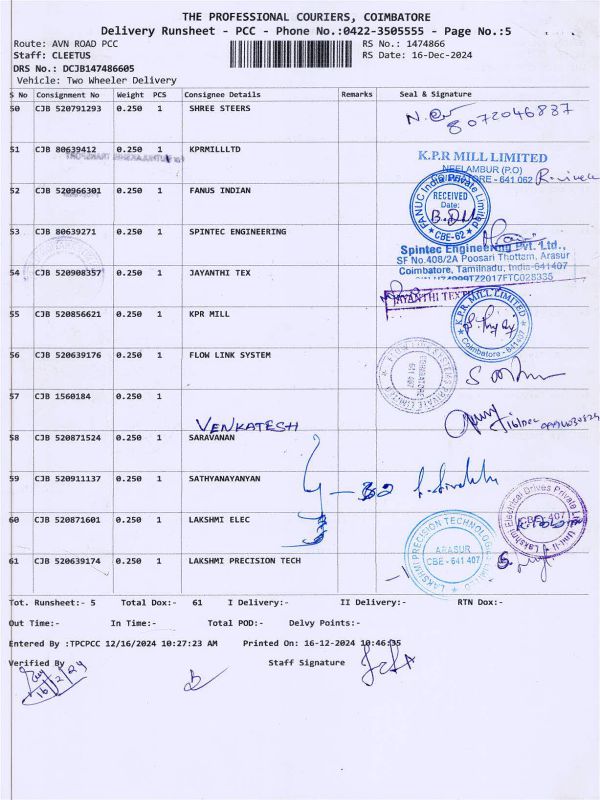 THE PROFESSIONAL COURIERS, COIMBATORE
Delivery Runsheet - PCC - Phone No.:0422-3505555 - Page No.:5
Route: AVN ROAD PCC RS No.: 1474866
Staff: CLEETUS RS Date: 16-Dec-2024
DRS No.: DCJB147486605
Vehicle: Two Wheeler Delivery
S No Consignment No Weight PCS Consignee Details Remarks Seal & Signature
50 CJB 520791293 0.250 1 SHREE STEERS
8072046837
51 CJB 80639412 0.250 1 KPRMILLLTD
K.P.R MILL LIMITED
NEELAMBUR (P.O)
COIMBATORE - 641 062
52 CJB 520966301 0.250 1 FANUS INDIAN
FANUC India Private Limited
RECEIVED
Date:
CBE-62
53 CJB 80639271 0.250 1 SPINTEC ENGINEERING
Spintec Engineering Pvt. Ltd.,
SF No.408/2A Poosari Thottam, Arasur
Coimbatore, Tamilnadu, India-641407
54 CJB 520908357 0.250 1 JAYANTHI TEX
JAYANTHI TEXT
55 CJB 520856621 0.250 1 KPR MILL
K.P.R. MILL LIMITED
Coimbatore - 641407
56 CJB 520639176 0.250 1 FLOW LINK SYSTEM
57 CJB 1560184 0.250 1
VENKATESH
58 CJB 520871524 0.250 1 SARAVANAN
59 CJB 520911137 0.250 1 SATHYANAYANYAN
60 CJB 520871601 0.250 1 LAKSHMI ELEC
Lakshmi Electrical Drives Private Limited
Unit-II
CBE - 407
61 CJB 520639174 0.250 1 LAKSHMI PRECISION TECH
LAKSHMI PRECISION TECHNOLOGIES LIMITED
ARASUR
CBE - 641 407
Tot. Runsheet:- 5 Total Dox:- 61 I Delivery:- II Delivery:- RTN Dox:-
Out Time:- In Time:- Total POD:- Delvy Points:-
Entered By :TPCPCC 12/16/2024 10:27:23 AM Printed On: 16-12-2024 10:46:35
Verified By Staff Signature
16/12/24